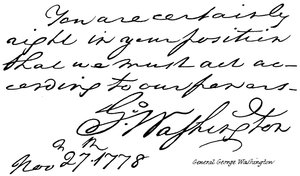 You are certainly
right in your position
that we must act ac-
cording to our powers-
Go Washington
Nov 27th 1778
General George Washington